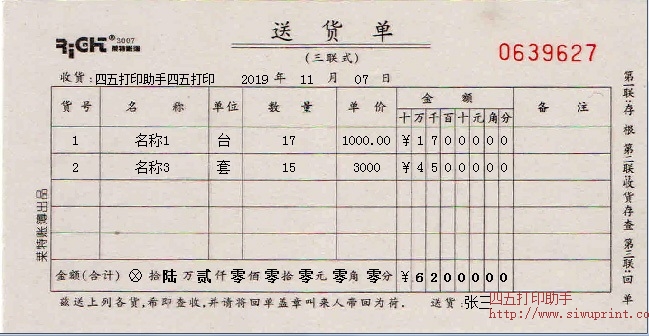 RiGHT® 3007 莱特账簿
送货单
(三联式)
0639627
收货:四五打印助手四五打印 2019 年 11 月 07 日
货号 名称 单位 数量 单价 金额 备注
十万千百十元角分
1 名称1 台 17 1000.00 ¥1700000
2 名称3 套 15 3000 ¥4500000
金额(合计) ⊗ 拾 陆 万 贰 仟 零 佰 零 拾 零 元 零 角 零 分 ¥6200000
兹送上列各货,希即查收,并请将回单盖章叫来人带回为荷。 送货:张三
莱特账簿出品
第一联:存根 第二联收货存查 第三联:回单
四五打印助手
http://www.siwuprint.com